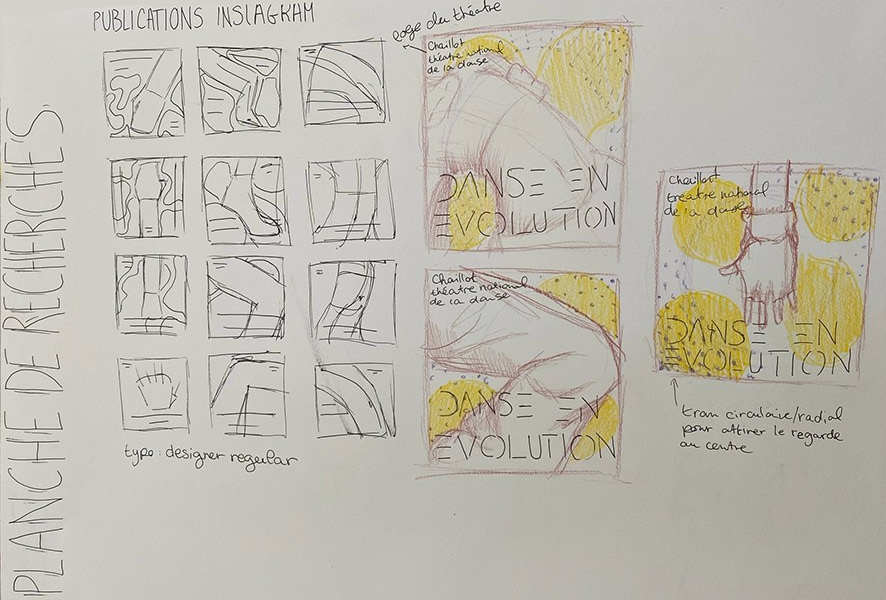 PLANCHE DE RECHERCHES
PUBLICATIONS INSTAGRAM
loge du théâtre
Chaillot
théatre national
de la danse
DANSE EN
EVOLUTION
Chaillot
théatre national
de la danse
DANSE EN
EVOLUTION
typo : designer regular
Chaillot
théatre national
de la danse
DANSE EN
EVOLUTION
tram circulaire/radial
pour attirer le regarde
au centre